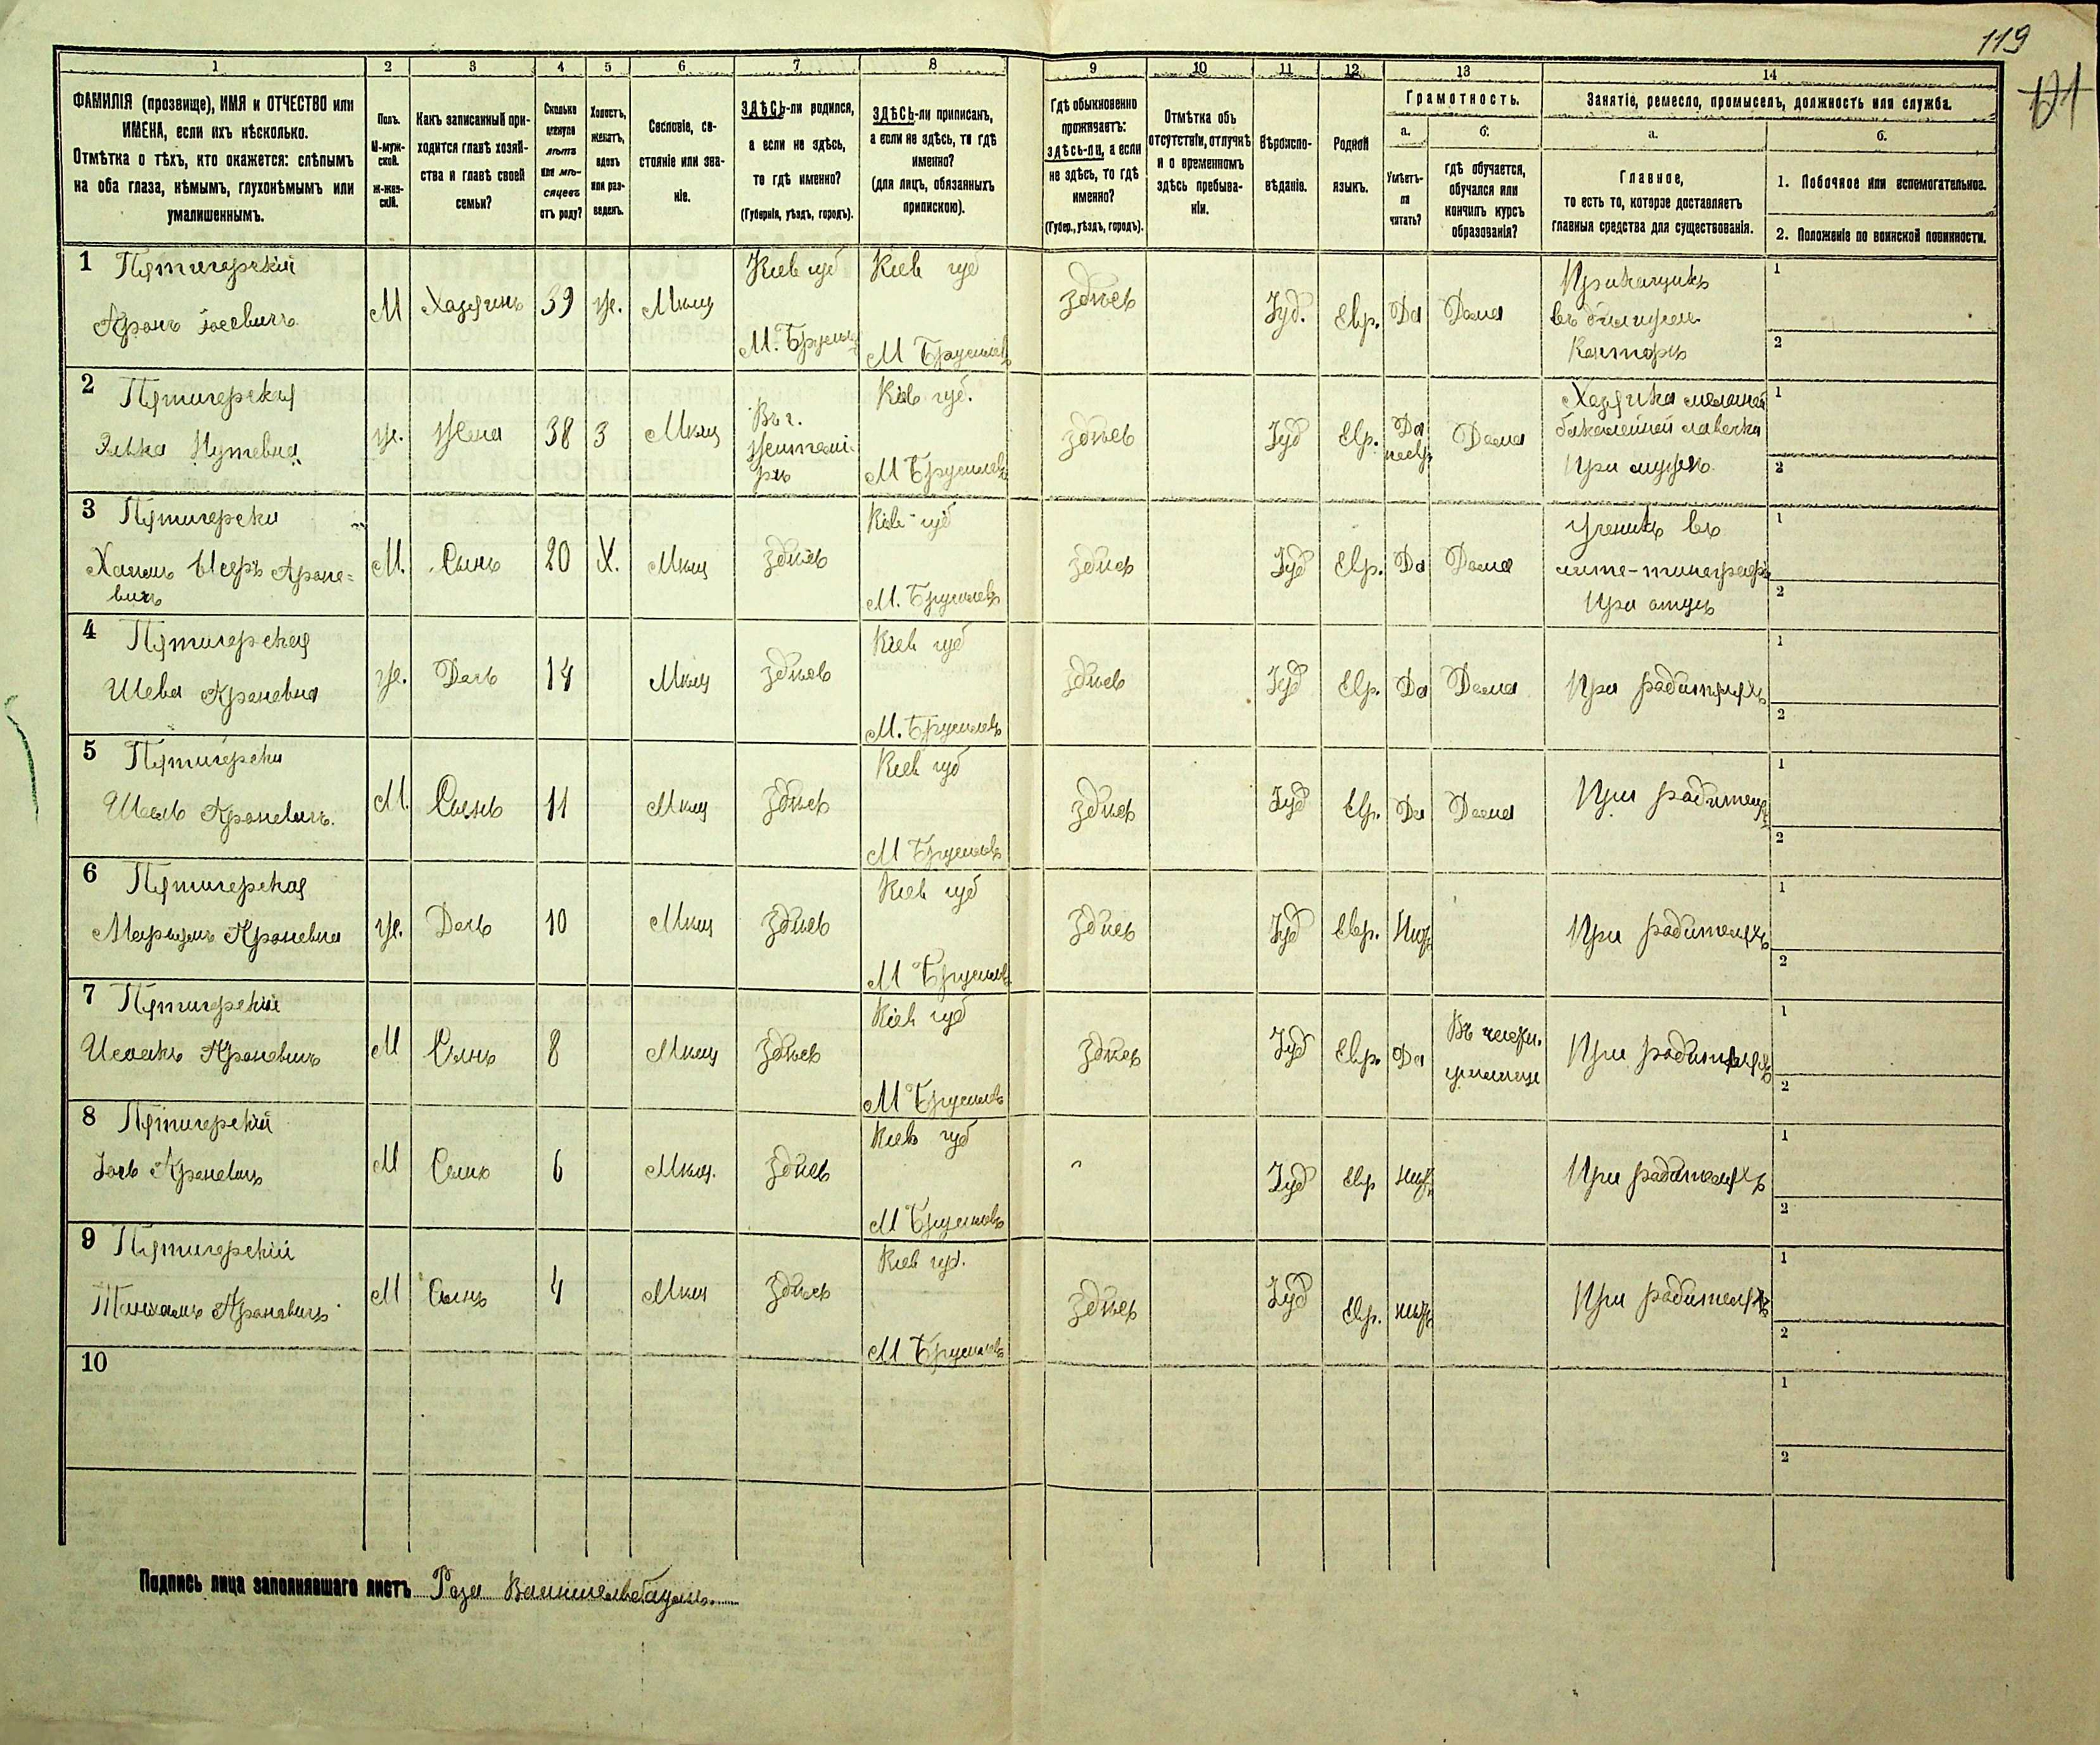 119
121
1 2 3 4 5 6 7 8 9 10 11 12 13 14
ФАМИЛІЯ (прозвище), ИМЯ и ОТЧЕСТВО или
ИМЕНА, если ихъ нѣсколько.
Отмѣтка о тѣхъ, кто окажется: слѣпымъ
на оба глаза, нѣмымъ, глухонѣмымъ или
умалишеннымъ.
Полъ.
М-муж-
ской.
Ж-жен-
скій.
Какъ записанный при-
ходится главѣ хозяй-
ства и главѣ своей
семьи?
Сколько
минуло
лѣтъ
или мѣ-
сяцевъ
отъ роду?
Холостъ,
женатъ,
вдовъ
или раз-
веденъ.
Сословіе, со-
стояніе или зва-
ніе.
ЗДѢСЬ-ли родился,
а если не здѣсь,
то гдѣ именно?
(Губернія, уѣздъ, городъ).
ЗДѢСЬ-ли приписанъ,
а если не здѣсь, то гдѣ
именно?
(для лицъ, обязанныхъ
припискою).
Гдѣ обыкновенно
проживаетъ:
здѣсь-ли, а если
не здѣсь, то гдѣ
именно?
(Губер., уѣздъ, городъ).
Отмѣтка объ
отсутствіи, отлучкѣ
и о временномъ
здѣсь пребыва-
ніи.
Вѣроиспо-
вѣданіе.
Родной
языкъ.
Грамотность.
а.
Умѣетъ-
ли
читать?
б.
гдѣ обучается,
обучался или
кончилъ курсъ
образованія?
Занятіе, ремесло, промыселъ, должность или служба.
а.
Главное,
то есть то, которое доставляетъ
главныя средства для существованія.
б.
1. Побочное или вспомогательное.
2. Положеніе по воинской повинности.
1 Пятигорскій
Аронъ Іосевичъ
М
Хозяинъ
39
Ж.
Мѣщ
Кіев губ
М. Брусил
Кіев губ
М Брусиловъ
здѣсь
Іуд.
Евр.
Да
Дома
Прикащикъ
въ
Конторѣ
1
2
2 Пятигорская
Элька
Ж.
Жена
38
З
Мѣщ
Въ г.
Житомі-
рѣ
Кіев губ.
М Брусиловъ
здѣсь
Іуд
Евр.
Да
Дома
Хозяйка мелочной
бакалейной лавочки
При мужѣ
1
2
3 Пятигорски
Ароно-
вичъ
М.
Сынъ
20
Х.
Мѣщ
здѣсь
Кіев губ
М. Брусиловъ
здѣсь
Іуд
Евр.
Да
Дома
Ученикъ въ
лито-типограф
При отцѣ
1
2
4 Пятигорская
Шева Ароновна
Ж.
Дочь
14
Мѣщ
здѣсь
Кіев губ
М. Брусиловъ
здѣсь
Іуд
Евр.
Да
Дома
При родителяхъ
1
2
5 Пятигорски
Ароновичъ.
М.
Сынъ
11
Мѣщ
здѣсь
Кіев губ
М Брусиловъ
здѣсь
Іуд
Евр.
Да
Дома
При родителях
1
2
6 Пятигорская
Ароновна
Ж.
Дочь
10
Мѣщ
здѣсь
Кіев губ
М Брусиловъ
здѣсь
Іуд
Евр.
При родителяхъ
1
2
7 Пятигорскій
Исаакъ Ароновичъ
М
Сынъ
8
Мѣщ
здѣсь
Кіев губ
М Брусиловъ
здѣсь
Іуд
Евр.
Да
Въ
училище
При родителяхъ
1
2
8 Пятигорскій
Іось Ароновичъ
М
Сынъ
6
Мѣщ.
здѣсь
Кіев губ
М Брусиловъ
Іуд
Евр
При родителяхъ
1
2
9 Пятигорскій
Ароновичъ
М
Сынъ
4
Мѣщ
здѣсь
Кіев губ.
М Брусиловъ
здѣсь
Іуд
Евр.
При родителяхъ
1
2
10
1
2
Подпись лица заполнявшаго листъ